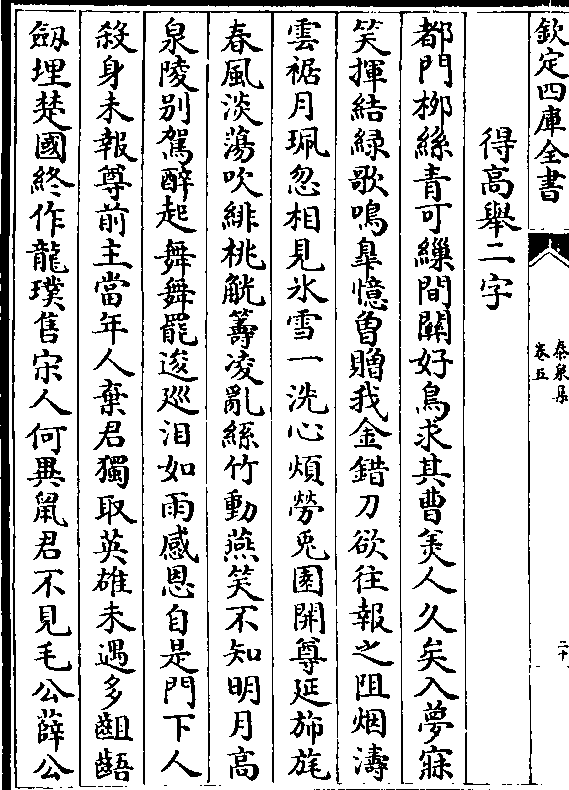 欽定四庫全書
泰泉集
卷五
二十
得高舉二字
都門栁絲青可繅間關好鳥求其曹美人久矣入夢寐
笑揮結緑歌鳴臯憶曾贈我金錯刀欲往報之阻烟濤
雲裾月珮忽相見氷雪一洗心煩勞兎園開尊延斾旄
春風淡蕩吹緋桃觥籌凌亂絲竹動燕笑不知明月高
泉陵别駕醉起舞舞罷逡廵泪如雨感恩自是門下人
殺身未報尊前主當年人棄君獨取英雄未遇多齟齬
劔埋楚國終作龍璞售宋人何異鼠君不見毛公薛公